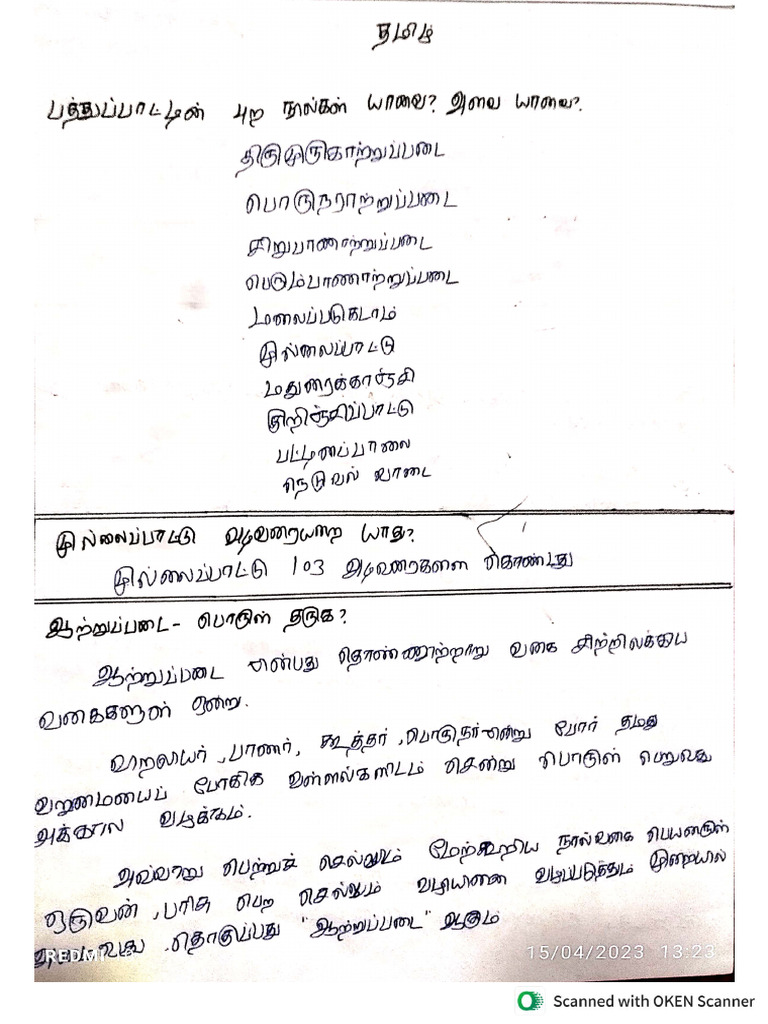 தமிழ்
பத்துப்பாட்டின் புற நூல்கள் யாவை? அவை யாவை?
திருமுருகாற்றுப்படை
பொருநராற்றுப்படை
சிறுபாணாற்றுப்படை
பெரும்பாணாற்றுப்படை
மலைப்படுகடாம்
முல்லைப்பாட்டு
மதுரைக்காஞ்சி
குறிஞ்சிப்பாட்டு
பட்டினப்பாலை
நெடுவல் வாடை
முல்லைப்பாட்டு அடிவரையறை யாது?
முல்லைப்பாட்டு 103 அடிவரைகளை கொண்டது
ஆற்றுப்படை - பொருள் தருக?
ஆற்றுப்படை என்பது தொண்ணூற்றாறு வகை சிற்றிலக்கிய
வகைகளுள் ஒன்று.
விறலியர், பாணர், கூத்தர், பொருநர் என்று போர் தமது
வறுமையைப் போக்கிக வள்ளல்களிடம் சென்று பொருள் பெறுவது
அக்கால வழக்கம்.
அவ்வாறு பெற்றுச் செல்லும் மேற்கூறிய நால்வகை பெயருள்
ஒருவன், பரிசு பெற செல்லும் வழியினை வழிப்படுத்தும் முறையில்
அமைவது. தொகுப்பது "ஆற்றுப்படை" ஆகும்
REDMI
15/04/2023 13:23
Scanned with OKEN Scanner